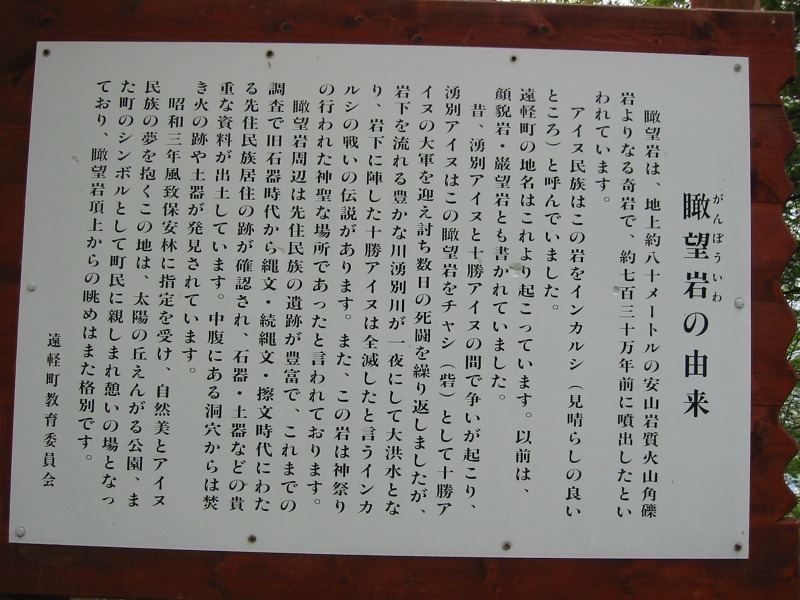 がんぼういわ
瞰望岩の由来
瞰望岩は、地上約八十メートルの安山岩質火山角礫
岩よりなる奇岩で、約七百三十万年前に噴出したとい
われています。
アイヌ民族はこの岩をインカルシ（見晴らしの良い
ところ）と呼んでいました。
遠軽町の地名はこれより起こっています。以前は、
顔貌岩・巌望岩とも書かれていました。
昔、湧別アイヌと十勝アイヌの間で争いが起こり、
湧別アイヌはこの瞰望岩をチャシ（砦）として十勝ア
イヌの大軍を迎え討ち数日の死闘を繰り返しましたが、
岩下を流れる豊かな川湧別川が一夜にして大洪水とな
り、岩下に陣した十勝アイヌは全滅したと言うインカ
ルシの戦いの伝説があります。また、この岩は神祭り
の行われた神聖な場所であったと言われております。
瞰望岩周辺は先住民族の遺跡が豊富で、これまでの
調査で旧石器時代から縄文・続縄文・擦文時代にわた
る先住民族居住の跡が確認され、石器・土器などの貴
重な資料が出土しています。中腹にある洞穴からは焚
き火の跡や土器が発見されています。
昭和三年風致保安林に指定を受け、自然美とアイヌ
民族の夢を抱くこの地は、太陽の丘えんがる公園、ま
た町のシンボルとして町民に親しまれ憩いの場となっ
ており、瞰望岩頂上からの眺めはまた格別です。
遠軽町教育委員会